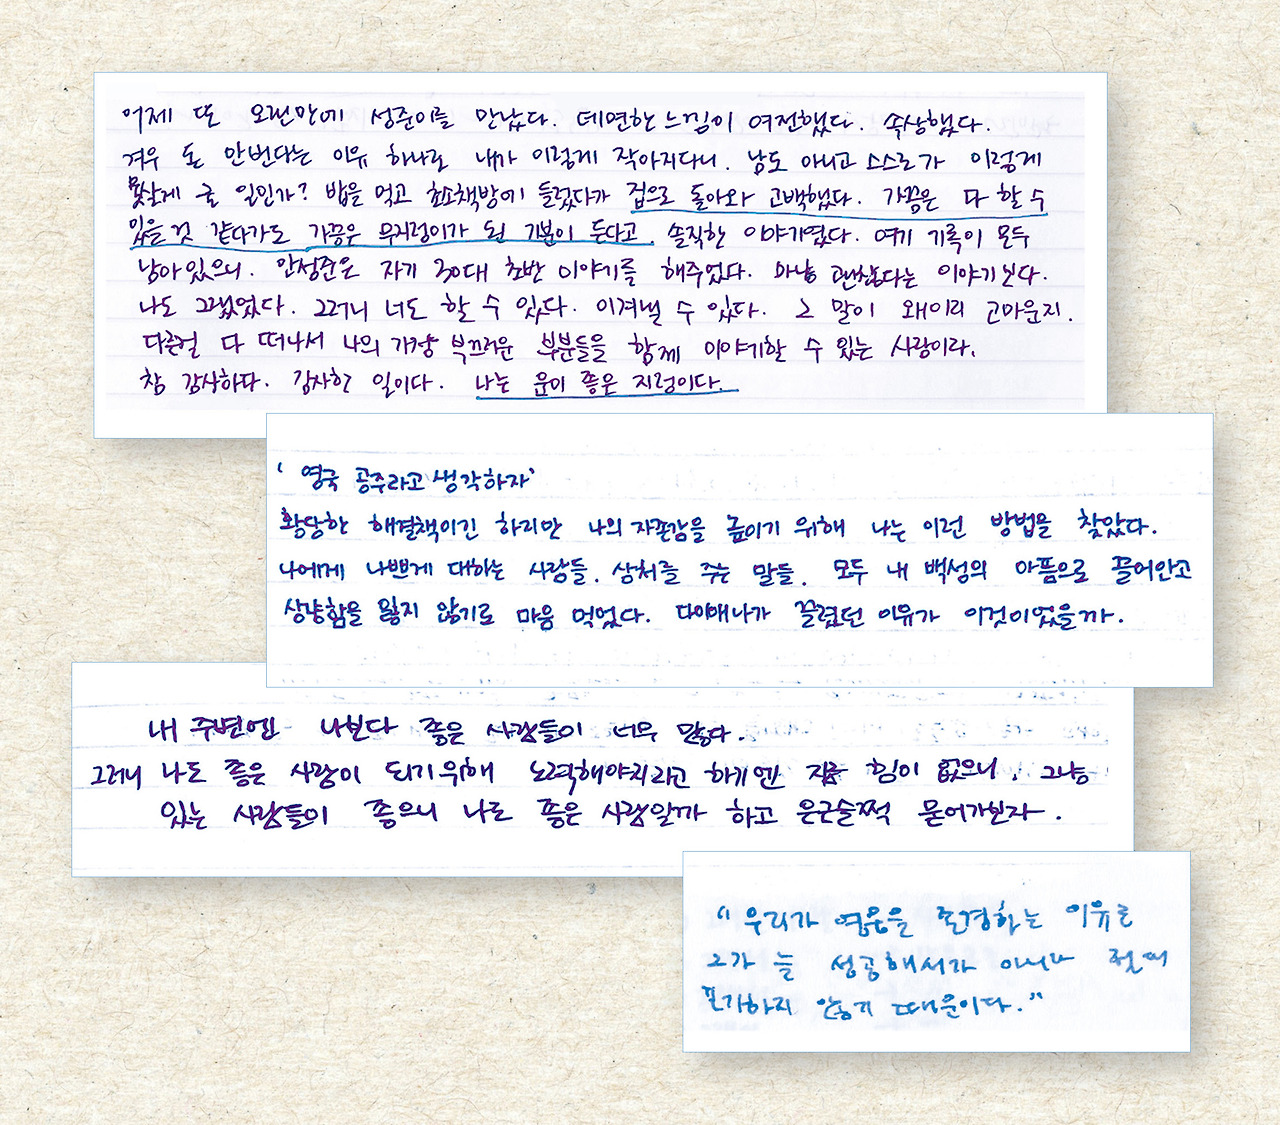 어제 또 오랜만에 성준이를 만났다. 데면한 느낌이 여전했다. 속상했다.
겨우 돈 안번다는 이유 하나로 내가 이렇게 작아지다니. 남도 아니고 스스로가 이렇게
못살게 굴 일인가? 밥을 먹고 초소책방에 들렀다가 집으로 돌아와 고백했다. 가끔은 다 할 수
있을 것 같다가도 가끔은 무지렁이가 된 기분이 든다고. 솔직한 이야기였다. 여기 기록이 모두
남아있으니. 안성준은 자기 30대 초반 이야기를 해주었다. 마냥 괜찮다는 이야기보다.
나도 그랬었다. 그러니 너도 할 수 있다. 이겨낼 수 있다. 그 말이 왜이리 고마운지.
다른걸 다 떠나서 나의 가장 부끄러운 부분들을 함께 이야기할 수 있는 사람이라.
참 감사하다. 감사한 일이다. 나는 운이 좋은 지렁이다.
'영국 공주라고 생각하자'
황당한 해결책이긴 하지만 나의 자존감을 높이기 위해 나는 이런 방법을 찾았다.
나에게 나쁘게 대하는 사람들. 상처를 주는 말들. 모두 내 백성의 아픔으로 끌어안고
상냥함을 잃지 않기로 마음 먹었다. 다이애나가 끌렸던 이유가 이것이었을까.
내 주변엔 나보다 좋은 사람들이 너무 많다.
그러니 나도 좋은 사람이 되기위해 노력해야지라고 하기엔 지금 힘이 없으니, 그냥
있는 사람들이 좋으니 나도 좋은 사람일까 하고 은근슬쩍 묻어가본다.
"우리가 영웅을 존경하는 이유는
그가 늘 성공해서가 아니라 절대
포기하지 않기 때문이다."